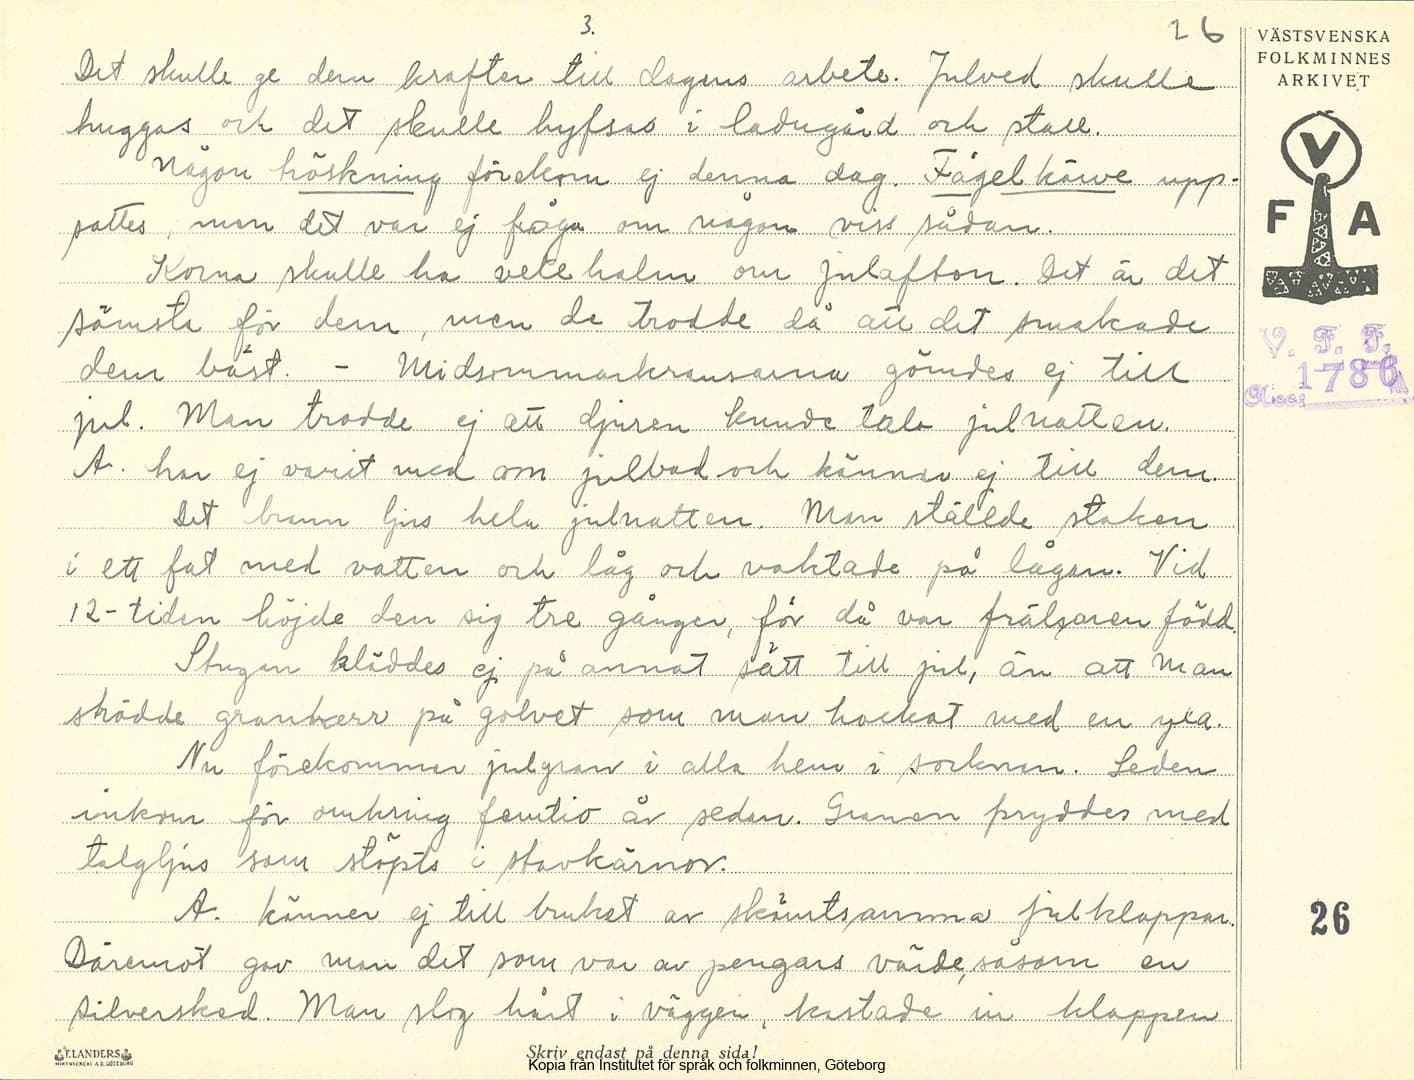 3.
26
Det skulle ge dem krafter till dagens arbete. Julved skulle
huggas och det skulle hyfsas i ladugård och stall.
Någon höskning förekom ej denna dag. Fågelkärve upp-
sattes, men det var ej fråga om någon viss sådan.
Korna skulle ha vetehalm om julafton. Det är det
sämsta för dem, men de trodde då att det smakade
dem bäst. - Midsommarkransarna gömdes ej till
jul. Man trodde ej att djuren kunde tala julnatten.
A. har ej varit med om julbad och känner ej till dem.
Det brann ljus hela julnatten. Man ställde staken
i ett fat med vatten och låg och vaktade på lågan. Vid
12-tiden höjde den sig tre gånger, för då var frälsaren född.
Stugan kläddes ej på annat sätt till jul, än att man
strödde granbarr på golvet som man hackat med en yxa.
Nu förekommer julgran i alla hem i socknen. Seden
inkom för omkring femtio år sedan. Granen pryddes med
talgljus som stöpts i stavkärnor.
A. känner ej till bruket av skämtsamma julklappar.
Däremot gav man det som var av pengars värde, såsom en
silversked. Man slog hårt i väggen, kastade in klappen
VÄSTSVENSKA
FOLKMINNES
ARKIVET
V
F A
V. F. F.
1786
26
ELANDERS
Skriv endast på denna sida!
Kopia från Institutet för språk och folkminnen, Göteborg